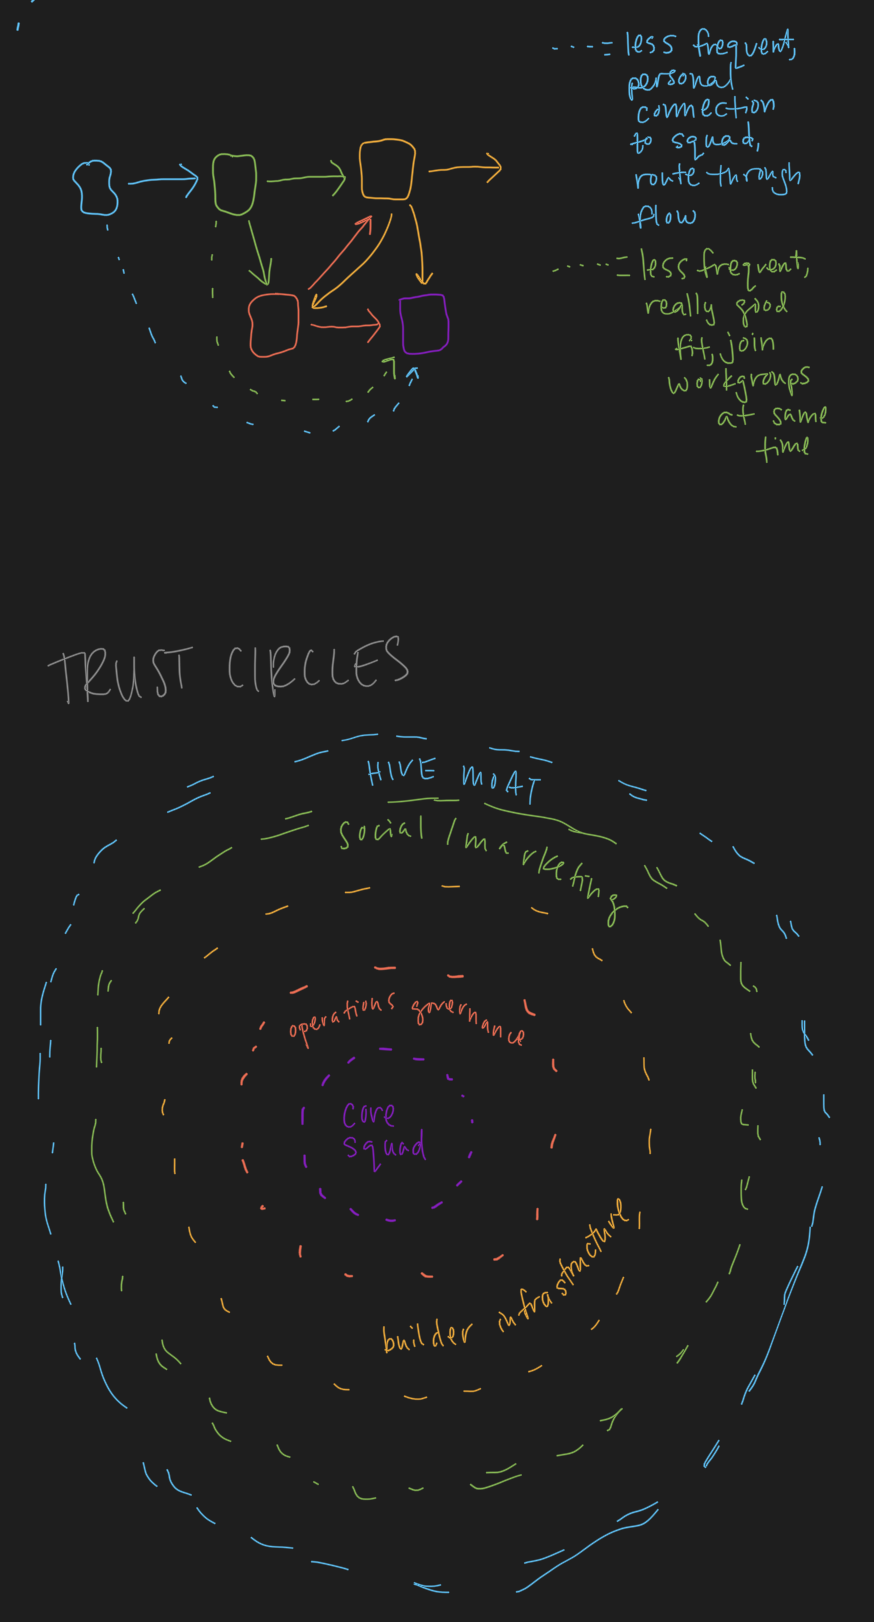 ----= less frequent,
personal
connection
to squad,
route through
flow
-----= less frequent,
really good
fit, join
workgroups
at same
time
TRUST CIRCLES
HIVE MOAT
social/marketing
operations governance
core
squad
builder infrastructure,